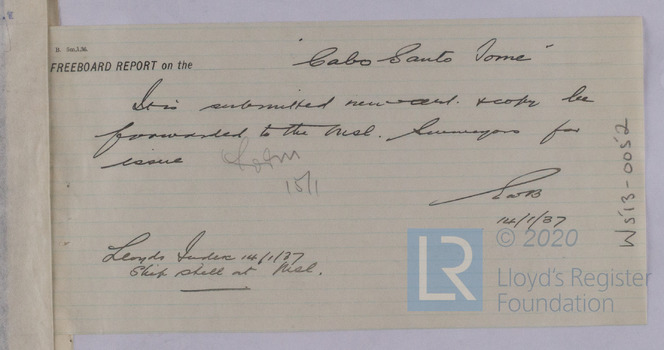 D. 5m,1,36.
FREEBOARD REPORT on the "Cabo Santo Tome"
It is submitted new cert. & copy be
forwarded to the Msl. Surveyors for
issue
15/1
14/1/37
Lloyds Index 14/1/37
Ship still at Msl.
W513-0052
LR
© 2020
Lloyd's Register
Foundation